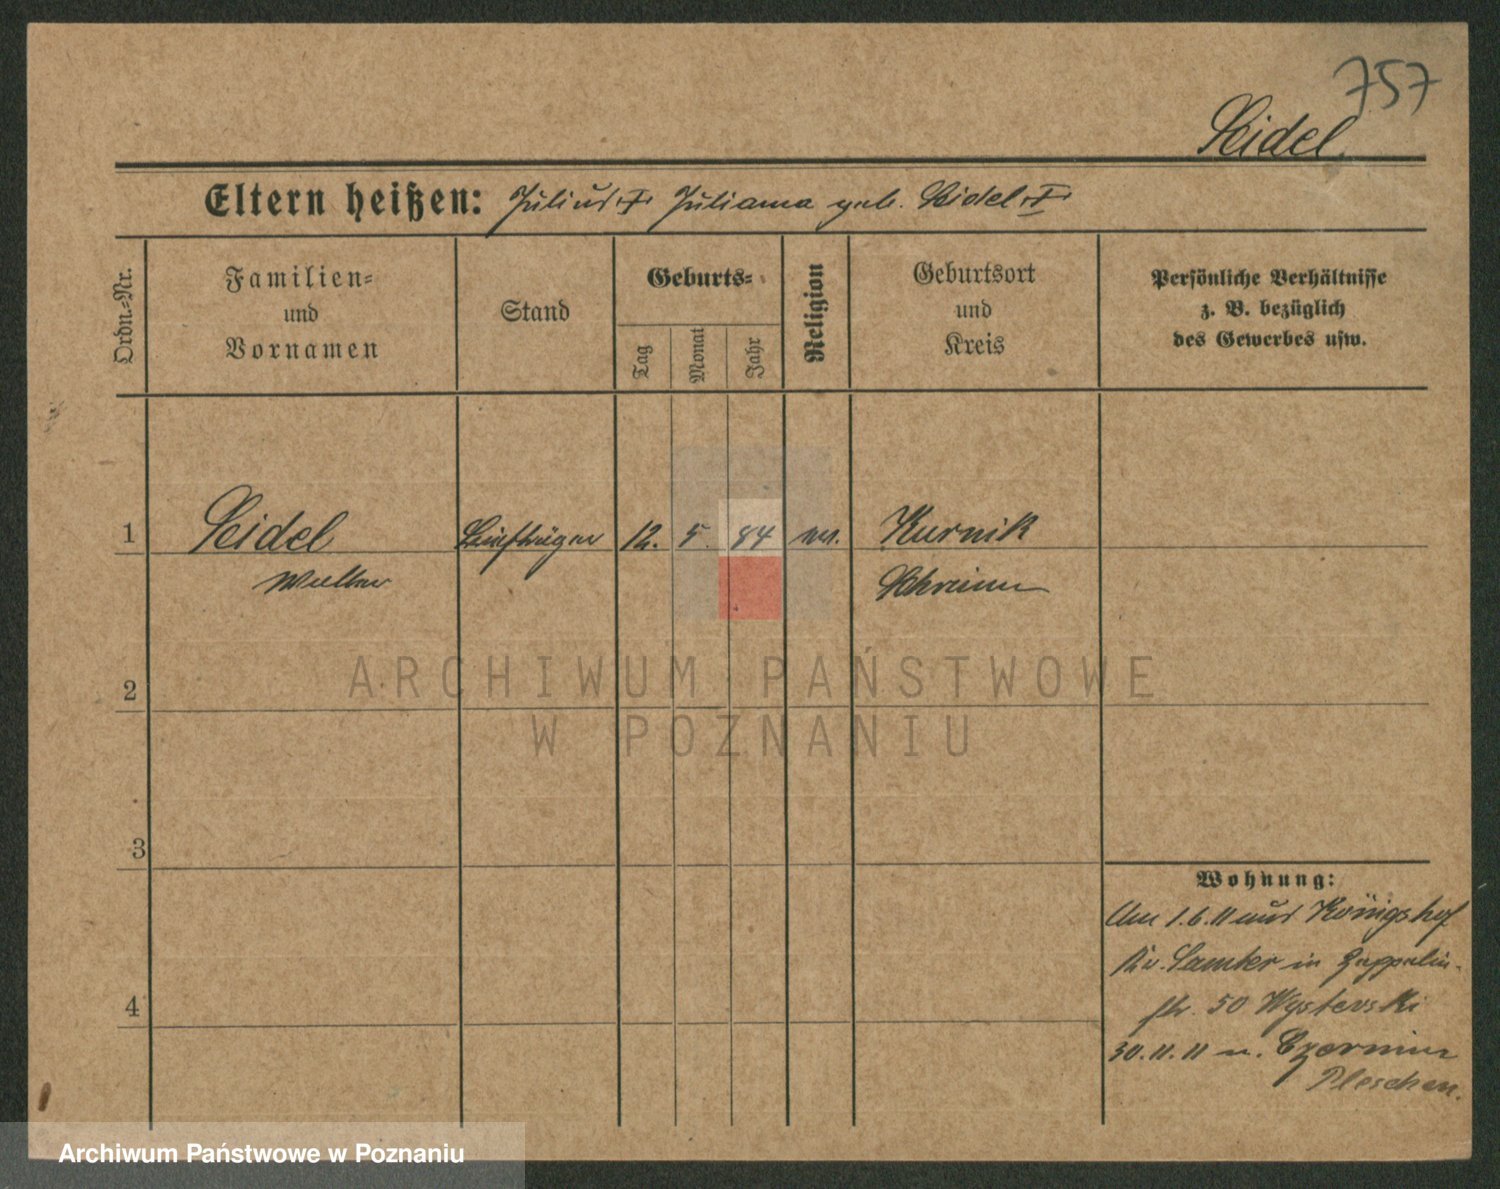 757
Seidel
Eltern heißen: Julius † Juliana geb. Seidel †
Ordn.-Nr.
Familien-
und
Vornamen
Stand
Geburts-
Tag
Monat
Jahr
Religion
Geburtsort
und
Kreis
Persönliche Verhältnisse
z. B. bezüglich
des Gewerbes usw.
1 Seidel Briefträger 12. 5. 84 ev. Kurnik
Walter Schrimm
2
3
4
Wohnung:
Am 1.6.11 aus Königshof
Kr. Samter in Zeppelin-
str. 50
30.11.11 n. Czermin
Pleschen.
ARCHIWUM PAŃSTWOWE
W POZNANIU
Archiwum Państwowe w Poznaniu